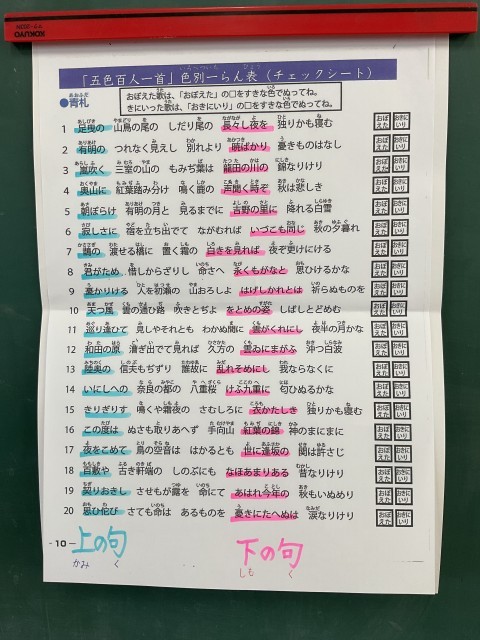 KOKUYO
「五色百人一首」色別一らん表(チェックシート)
おぼえた歌は、「おぼえた」の□をすきな色でぬってね。
きにいった歌は、「おきにいり」の□をすきな色でぬってね。
●青札
1 足曳の 山鳥の尾の しだり尾の 長々し夜を 独りかも寝む おぼえた おきにいり
2 有明の つれなく見えし 別れより 暁ばかり 憂きものはなし おぼえた おきにいり
3 嵐吹く 三室の山の もみぢ葉は 龍田の川の 錦なりけり おぼえた おきにいり
4 奥山に 紅葉踏み分け 鳴く鹿の 声聞く時ぞ 秋は悲しき おぼえた おきにいり
5 朝ぼらけ 有明の月と 見るまでに 吉野の里に 降れる白雪 おぼえた おきにいり
6 寂しさに 宿を立ち出でて ながむれば いづこも同じ 秋の夕暮れ おぼえた おきにいり
7 鵲の 渡せる橋に 置く霜の 白きを見れば 夜ぞ更けにける おぼえた おきにいり
8 君がため 惜しからざりし 命さへ 永くもがなと 思ひけるかな おぼえた おきにいり
9 憂かりける 人を初瀬の 山おろしよ はげしかれとは 祈らぬものを おぼえた おきにいり
10 天つ風 雲の通ひ路 吹きとぢよ をとめの姿 しばしとどめむ おぼえた おきにいり
11 巡り逢ひて 見しやそれとも わかぬ間に 雲がくれにし 夜半の月かな おぼえた おきにいり
12 和田の原 漕ぎ出でて見れば 久方の 雲ゐにまがふ 沖つ白波 おぼえた おきにいり
13 陸奥の 信夫もぢずり 誰故に 乱れそめにし 我ならなくに おぼえた おきにいり
14 いにしへの 奈良の都の 八重桜 けふ九重に 匂ひぬるかな おぼえた おきにいり
15 きりぎりす 鳴くや霜夜の さむしろに 衣かたしき 独りかも寝む おぼえた おきにいり
16 この度は ぬさも取りあへず 手向山 紅葉の錦 神のまにまに おぼえた おきにいり
17 夜をこめて 鳥の空音は はかるとも 世に逢坂の 関は許さじ おぼえた おきにいり
18 百敷や 古き軒端の しのぶにも なほあまりある 昔なりけり おぼえた おきにいり
19 契りおきし させもが露を 命にて あはれ今年の 秋もいぬめり おぼえた おきにいり
20 思ひ佗び さても命は あるものを 憂きにたへぬは 涙なりけり おぼえた おきにいり
- 10 -
上の句 下の句
かみ く しも く